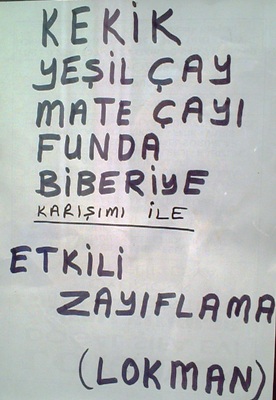 KEKİK
YEŞİL ÇAY
MATE ÇAYI
FUNDA
BİBERİYE
KARIŞIMI İLE
ETKİLİ
ZAYIFLAMA
(LOKMAN)